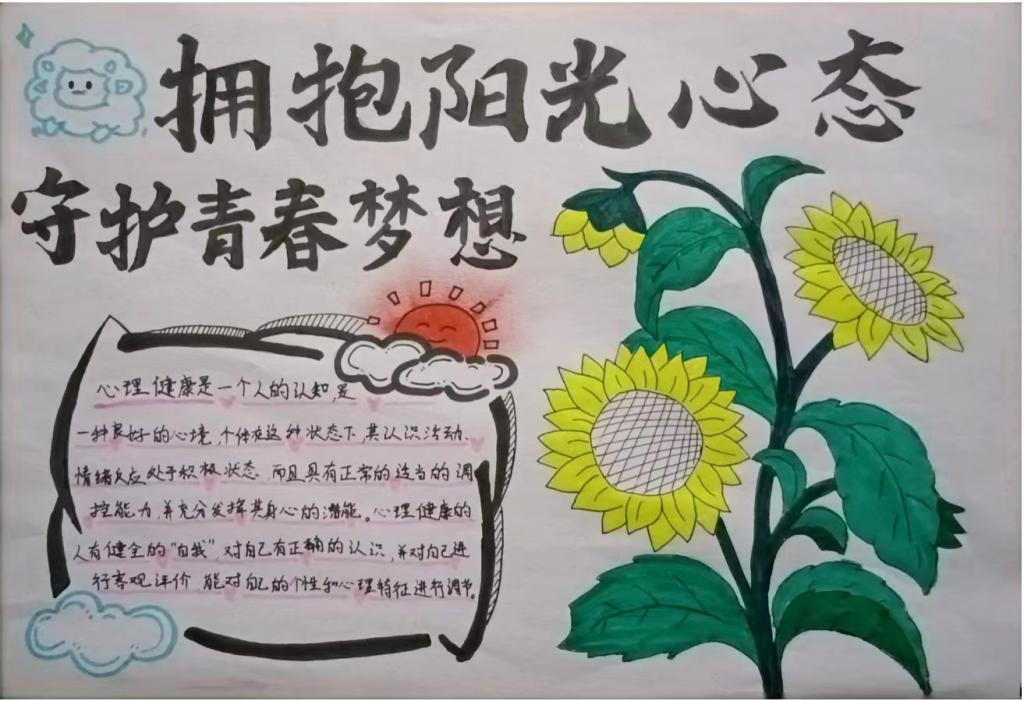 拥抱阳光心态
守护青春梦想
心理健康是一个人的认知,是
一种良好的心境,个体在这种状态下,其认识活动、
情绪反应处于积极状态,而且具有正常的适当的调
控能力,并充分发挥其身心的潜能。心理健康的
人有健全的“自我”,对自己有正确的认识,并对自己进
行客观评价,能对自己的个性和心理特征进行调节。